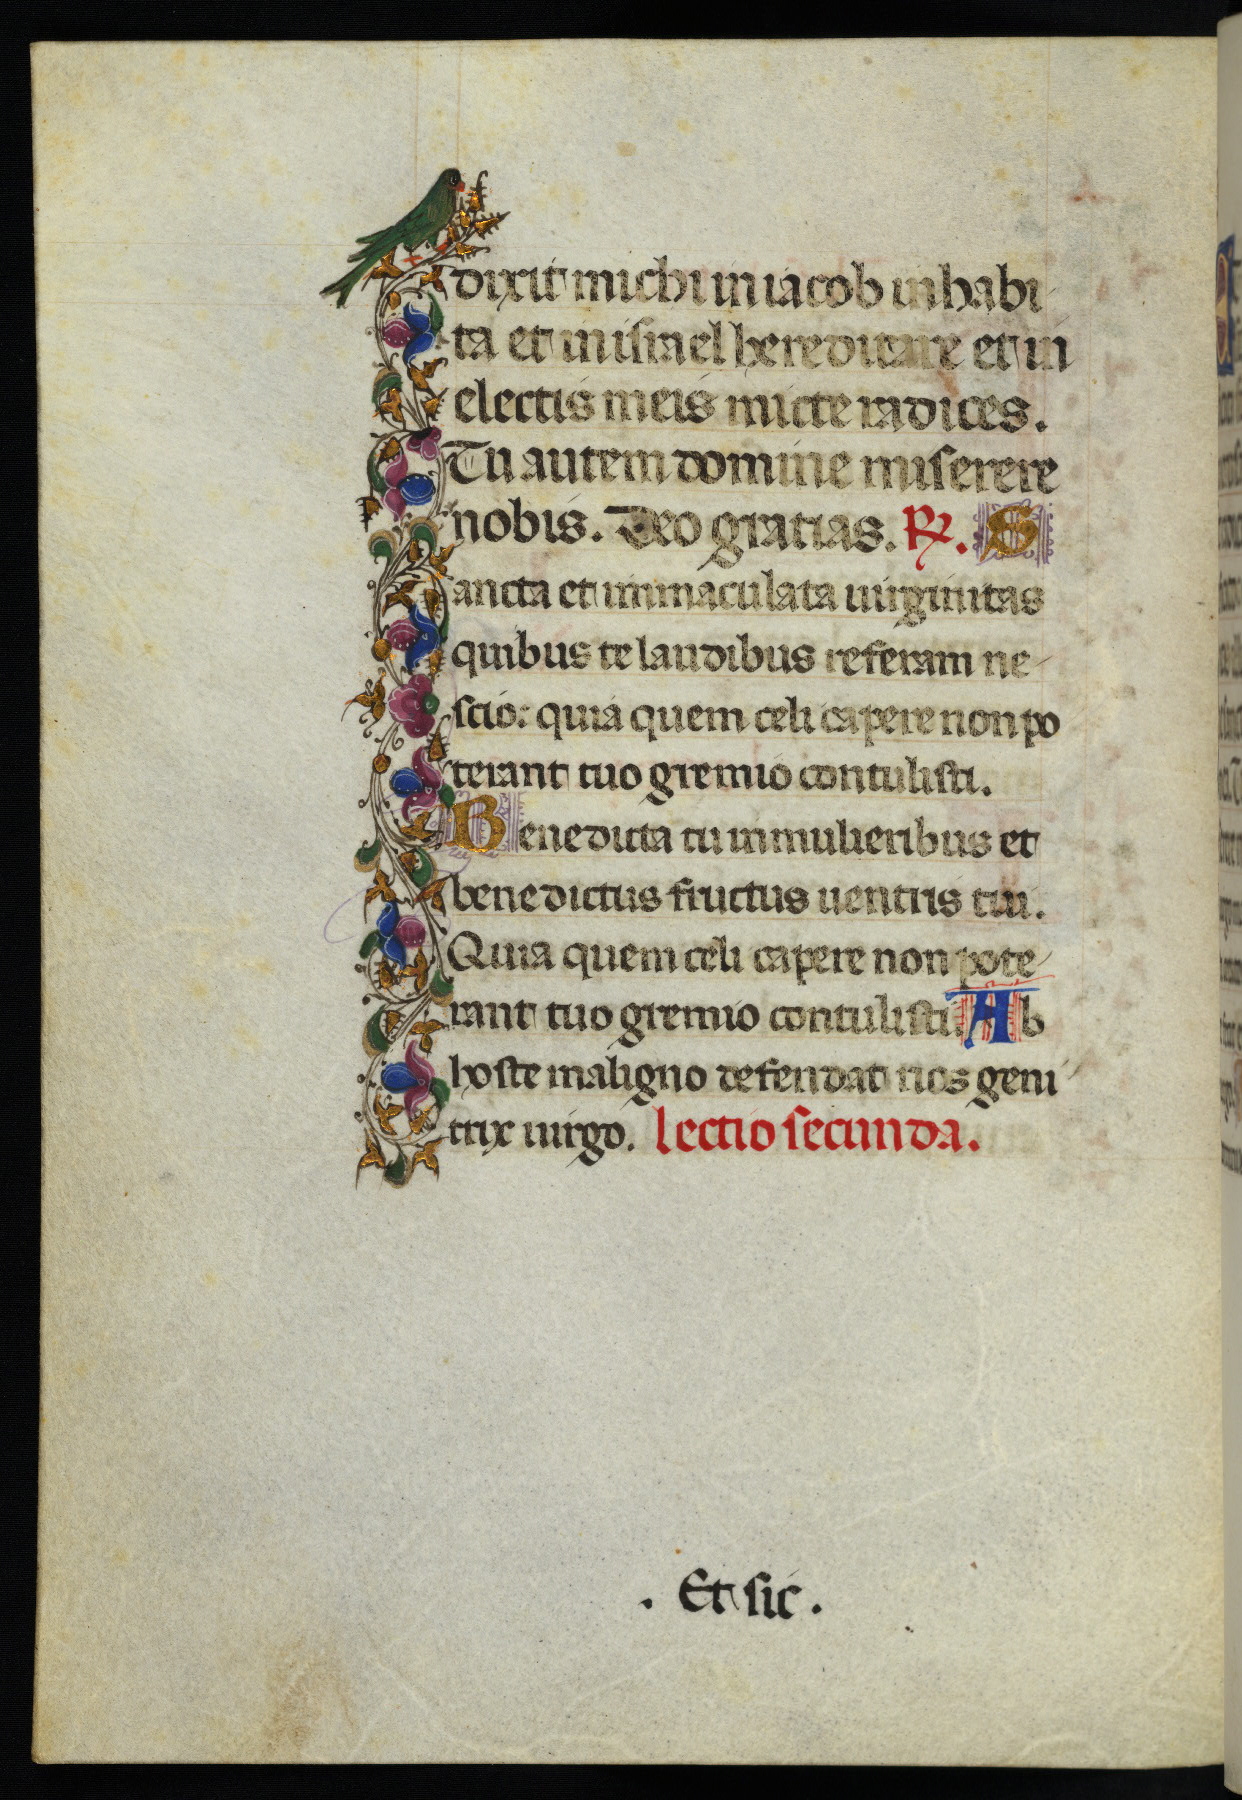 dixit michi in iacob inhabi
ta et in israel hereditare et in
electis meis micte radices.
Tu autem domine miserere
nobis. Deo gratias. R. S
ancta et immaculata uirginitas
quibus te laudibus referam ne
scio: quia quem celi capere non po
terant tuo gremio contulisti.
Benedicta tu in mulieribus et
benedictus fructus uentris tui.
Quia quem celi capere non pote
rant tuo gremio contulisti Ab
hoste maligno defendat nos geni
trix uirgo. lectio secunda.
. Et sic .